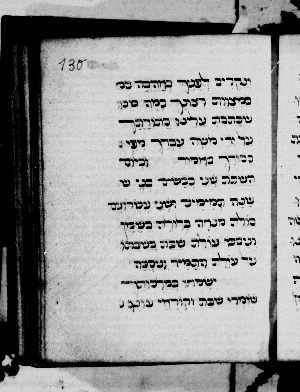 130
ונקריב לפניך באהבה כמ
במצוות רצונך כמה שכ
שכתבת עלינו בתורתך
על ידי משה עבדך מפי
כבודך כאמור וביום
השבת שני כבשים בני ש
שנה תמימים ושני עשרונים
סולת מנחה בלולה בשמן
ונסכו עולת שבת בשבתו
על עולת התמיד ונסכה
ישמחו במלכותך
שומרי שבת וקוראי עונג